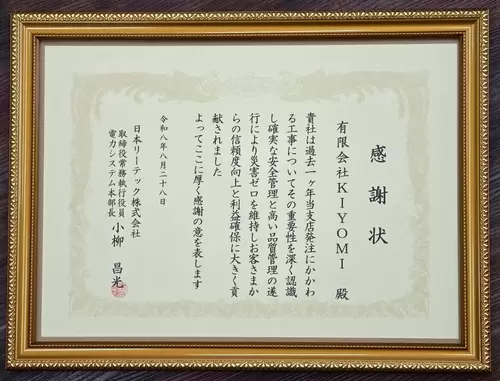 感謝状
有限会社KIYOMI 殿
貴社は過去一ヶ年当支店発注にかかわ
る工事についてその重要性を深く認識
し確実な安全管理と高い品質管理の遂
行により災害ゼロを維持しお客さまか
らの信頼度向上と利益確保に大きく貢
献されました
よってここに厚く感謝の意を表します
令和八年八月二十八日
日本リーテック株式会社
取締役常務執行役員
電力システム本部長 小柳 昌光